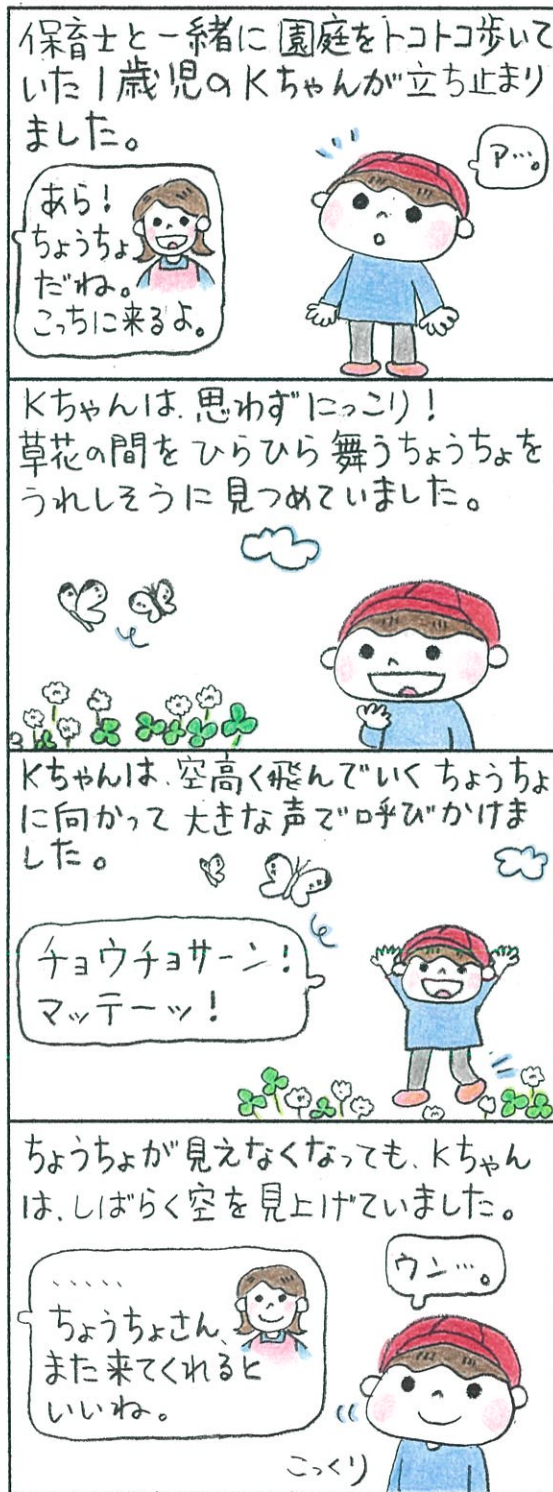 保育士と一緒に園庭をトコトコ歩いて
いた1歳児のKちゃんが立ち止まり
ました。
ア…。
あら!
ちょうちょ
だね。
こっちに来るよ。
Kちゃんは、思わずにっこり!
草花の間をひらひら舞うちょうちょを
うれしそうに見つめていました。
Kちゃんは、空高く飛んでいくちょうちょ
に向かって大きな声で呼びかけま
した。
チョウチョサーン!
マッテーッ!
ちょうちょが見えなくなっても、Kちゃん
は、しばらく空を見上げていました。
ウン…。
、、、、、
ちょうちょさん、
また来てくれると
いいね。
こっくり